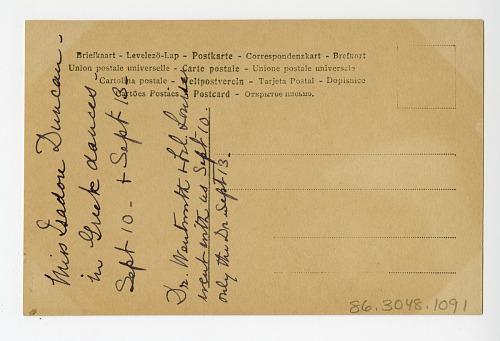 Briefkaart - Levelező-Lap - Postkarte - Correspondenzkart - Brefkort
Union postale universelle - Carte postale - Unione postale universale
Cartolina postale - Weltpostverein - Tarjeta Postal - Dopisnice
Cartões Postaes. Postcard - Открытое письмо.
Miss Isadore Duncan -
in Greek dances -
Sept 10 - + Sept 13 -
Dr. Wentworth + Louise
went with us Sept 10.
only the Dr. Sept 13 -
86.3048.1091